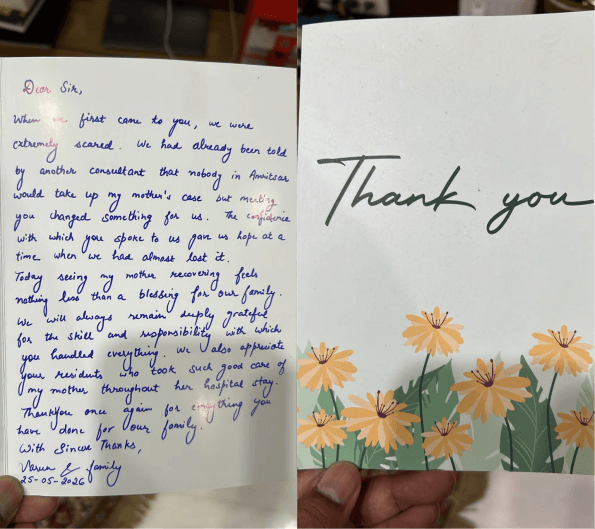 Dear Sir,
When we first came to you, we were
extremely scared. We had already been told
by another consultant that nobody in Amritsar
would take up my mother's case but meeting
you changed something for us. The confidence
with which you spoke to us gave us hope at a
time when we had almost lost it.
Today seeing my mother recovering feels
nothing less than a blessing for our family.
We will always remain deeply grateful
for the skill and responsibility with which
you handled everything. We also appreciate
your residents who took such good care of
my mother throughout her hospital stay.
Thankyou once again for everything you
have done for our family.
With Sincere Thanks,
Varun & family
25-05-2026
Thank you